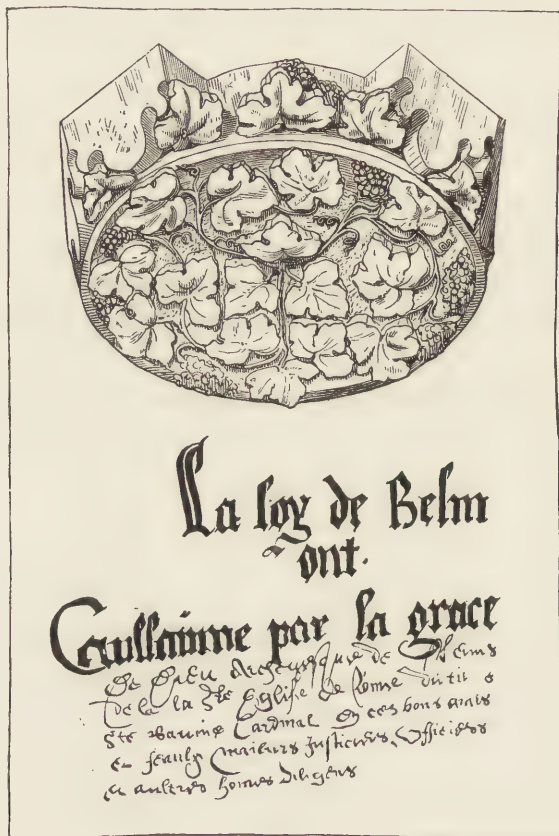 La loy de Belm
ont.
Guillaume par la grace
De Dieu Archevesque de Rheims
De la Ste Eglise de Rome du til
Ste Cardinal bons amis
et feaulx maieurs Justiciers Officiers
et aultres homes diligens